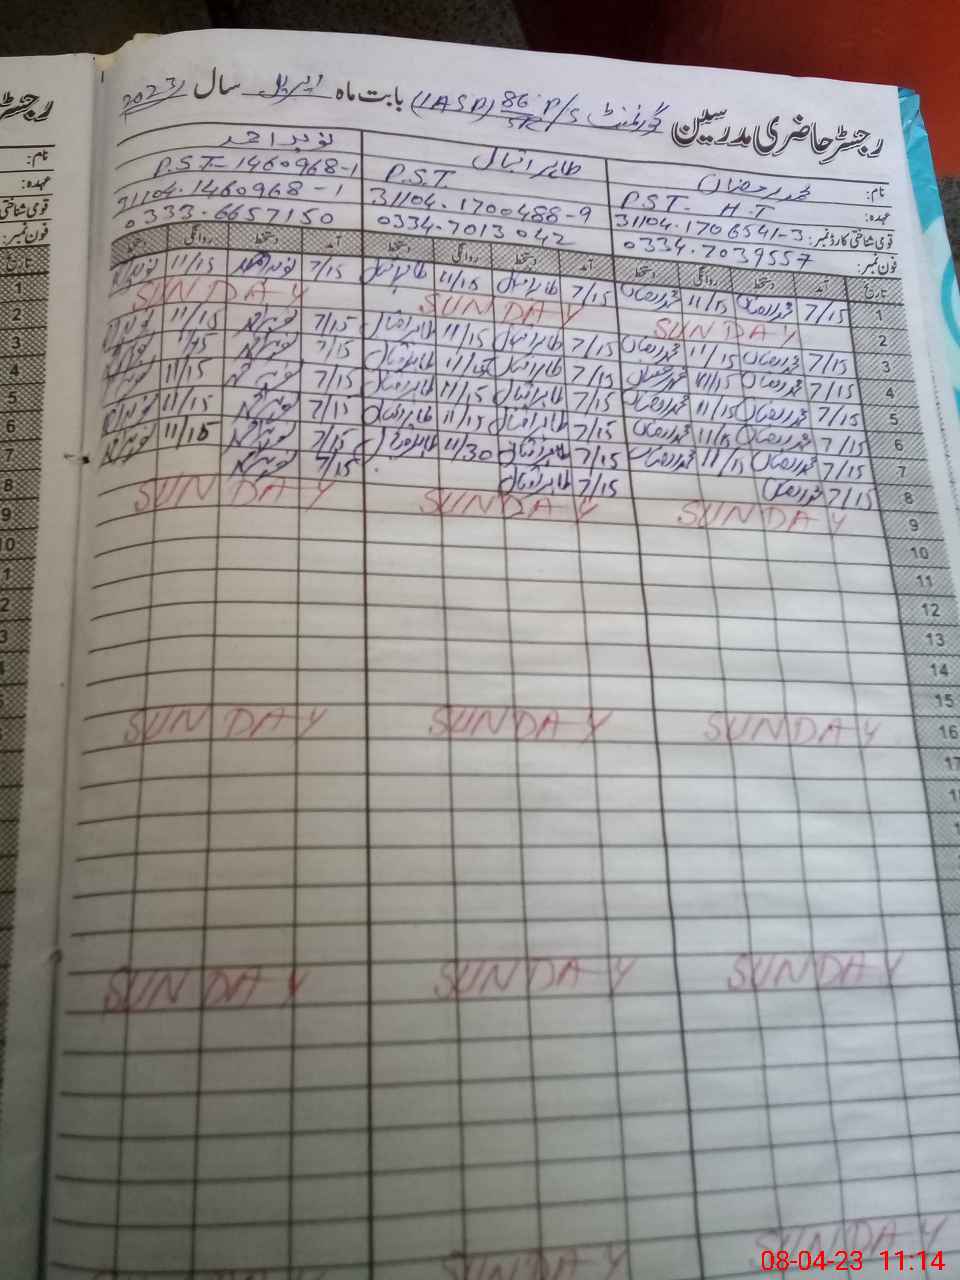 رجسٹر حاضری مدرسین گورنمنٹ P/S 86/5R (IASP) بابت ماہ اپریل سال 2023
نام: محمد رمضان طاہر اقبال نوید احمد
عہدہ: PST. H.T P.S.T. P.S.T-1460968-1
قومی شناختی کارڈ نمبر: 31104.1706541-3 31104.1700488-9 31104.1460968-1
فون نمبر: 0334.7039557 0334-7013042 0333.6657150
تاریخ آمد دستخط روانگی دستخط آمد دستخط روانگی دستخط آمد دستخط روانگی دستخط
1 7/15 محمد رمضان 11/15 محمد رمضان 7/15 طاہر اقبال 11/15 طاہر اقبال 7/15 نوید احمد 11/15 نوید احمد
2 SUNDAY SUNDAY SUNDAY
3 7/15 محمد رمضان 11/15 محمد رمضان 7/15 طاہر اقبال 11/15 طاہر اقبال 7/15 نوید احمد 11/15 نوید احمد
4 7/15 محمد رمضان 11/15 محمد رمضان 7/15 طاہر اقبال 11/15 طاہر اقبال 7/15 نوید احمد 11/15 نوید احمد
5 7/15 محمد رمضان 11/15 محمد رمضان 7/15 طاہر اقبال 11/15 طاہر اقبال 7/15 نوید احمد 11/15 نوید احمد
6 7/15 محمد رمضان 11/15 محمد رمضان 7/15 طاہر اقبال 11/15 طاہر اقبال 7/15 نوید احمد 11/15 نوید احمد
7 7/15 محمد رمضان 11/15 محمد رمضان 7/15 طاہر اقبال 11/30 طاہر اقبال 7/15 نوید احمد 11/15 نوید احمد
8 7/15 محمد رمضان 7/15 طاہر اقبال 7/15 نوید احمد
9 SUNDAY SUNDAY SUNDAY
10
11
12
13
14
15
16 SUNDAY SUNDAY SUNDAY
17
SUNDAY SUNDAY SUNDAY
SUNDAY SUNDAY
08-04-23 11:14